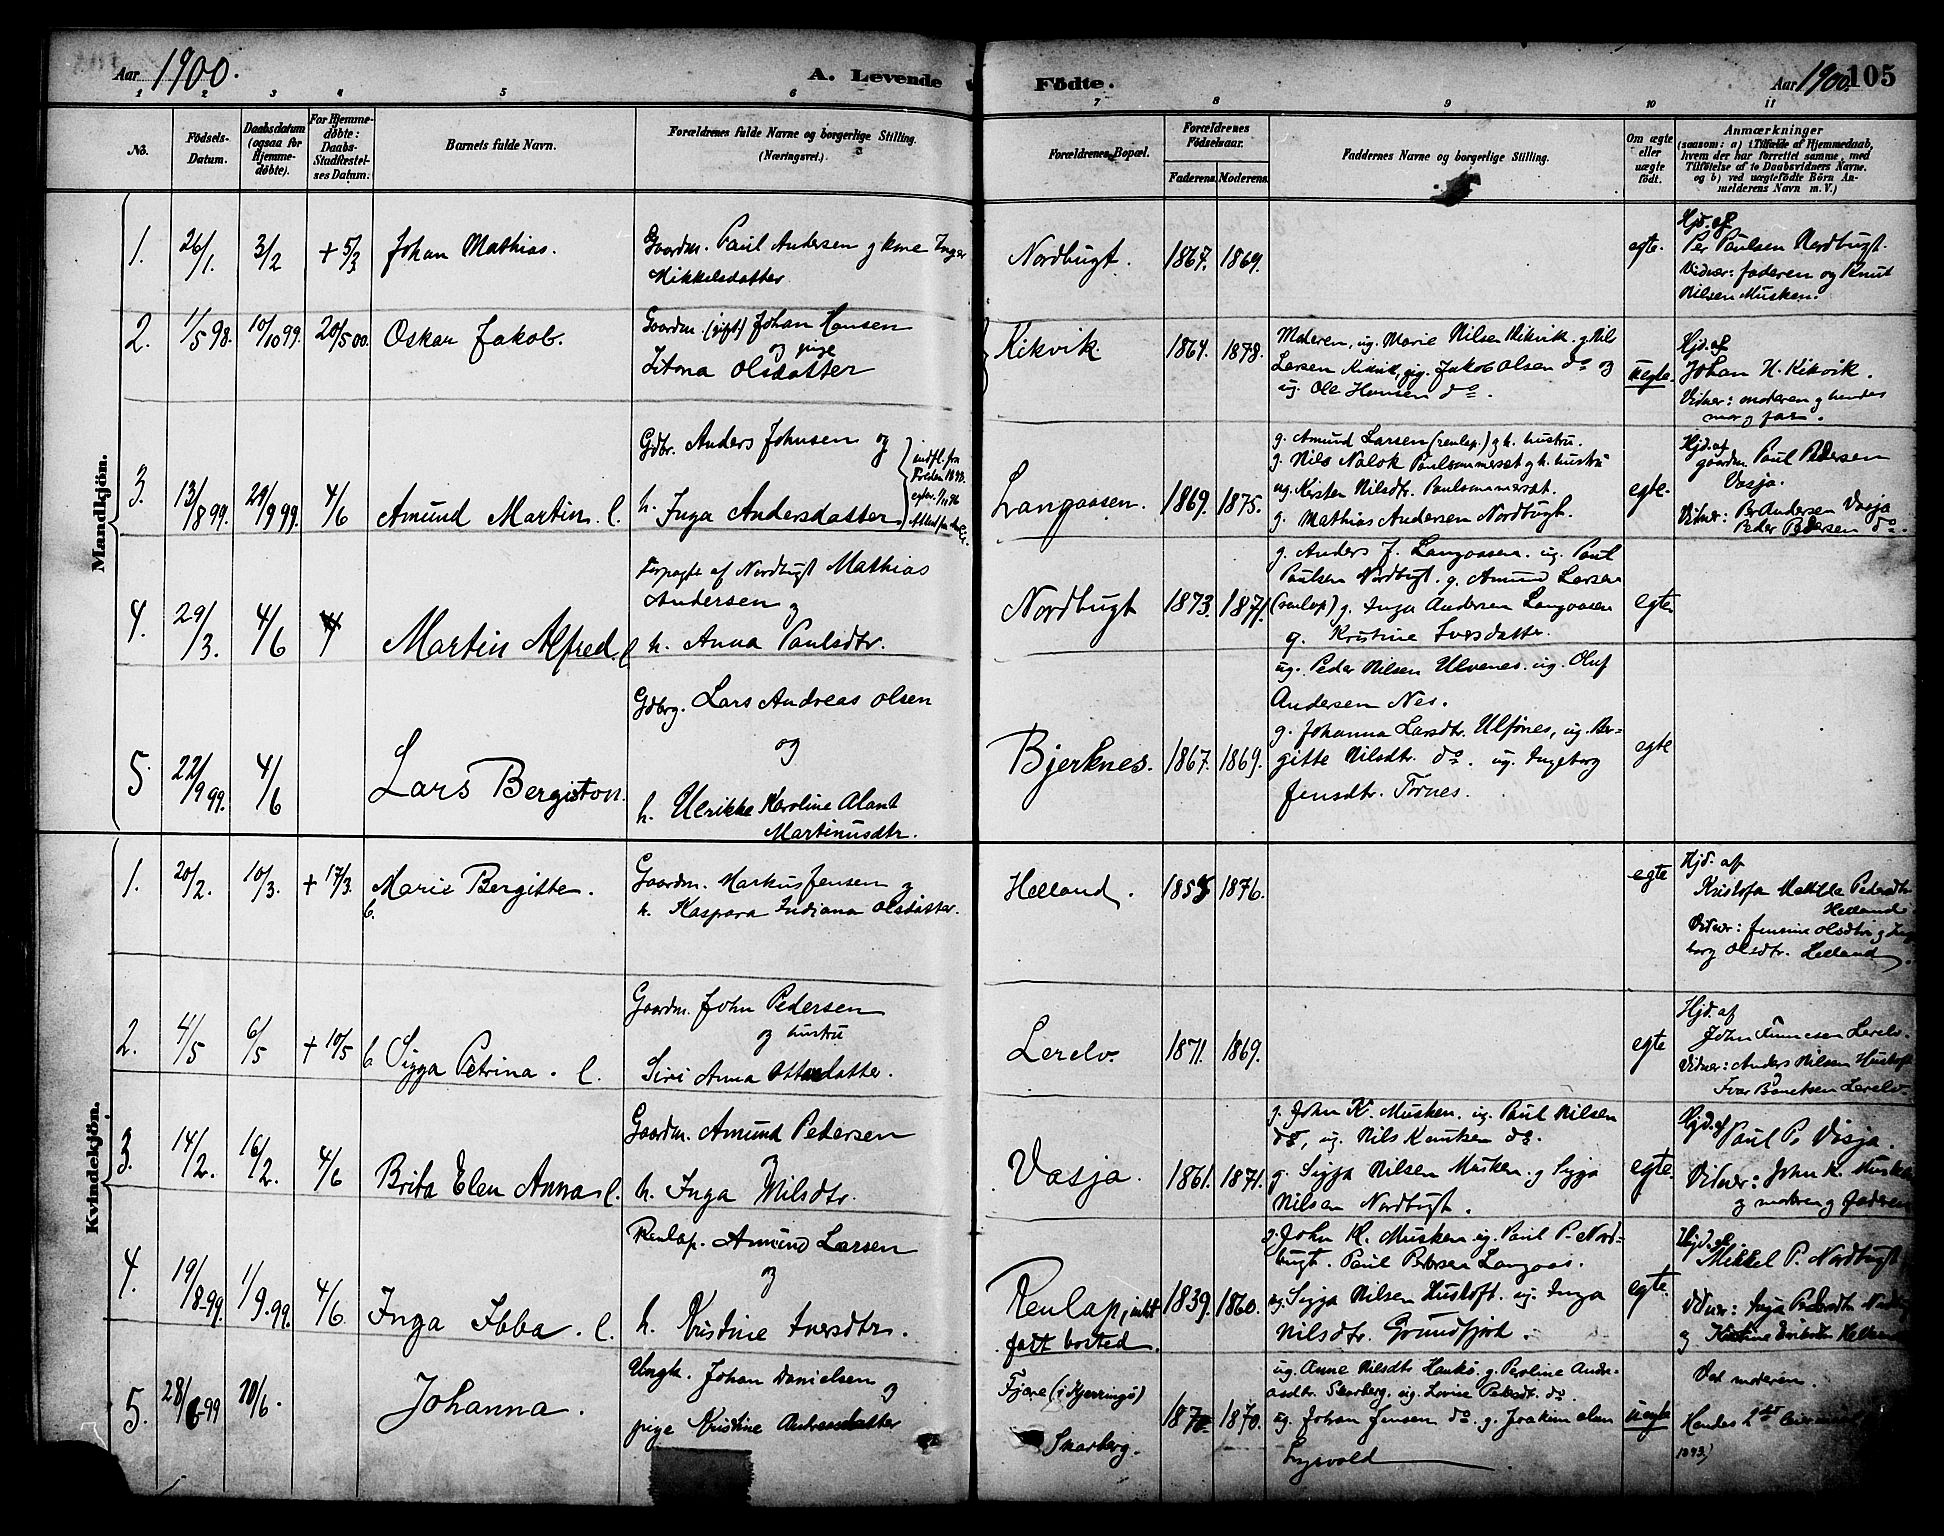 Aar 1900. A. Levende Fødte. Aar 1900. 105
1 2 3 4 5 6 7 8 9 10 11
No. Fødsels-Datum. Daabsdatum (ogsaa for Hjemmedøbte). For Hjemmedøbte: Daabs-Stadfæstelses Datum. Barnets fulde Navn. Forældrenes fulde Navne og borgerlige Stilling. (Næringsvei.) Forældrenes Bopæl. Forældrenes Fødselsaar. Faderens. Moderens. Faddernes Navne og borgerlige Stilling. Om ægte eller uægte født. Anmærkninger
(saasom: a) i Tilfælde af Hjemmedaab, hvem der har forrettet samme, med Tilføielse af to Daabsvidners Navne. og b) ved uægtefødte Børn Anmelderens Navn m. V.)
Mandkjön.
1. 26/1. 3/2 + 5/3 Johan Mathias.
Gaardm. Paul Andersen og kone Inger
Mikkelsdatter
Nordbugt. 1867. 1869. egte.
Hjd. af
Per Paulsen Nordbugt.
Vidner: faderen og Knut
Nilsen Musken.
2. 1/5 98. 10/10 99. 20/5 00. Oskar Jakob.
Gaardm. (gift) Johan Hansen
og pige
Olsdatter
Kikvik 1864. 1878.
Moderen, ug. Marie Nilsen Kikvik. g. Nils
Larsen Kikvik, ug. Jakob Olsen do og
ug. Ole Hansen do.
uegte.
Hjd. af
Johan H. Kikvik.
Vidner: moderen og hendes
mor og far.
3. 13/8 99. 24/9 99. 4/6 Amund Martin. l.
Gdbr. Anders Johnsen og
h. Inga Andersdatter
indfl. fra
Langaasen. 1869. 1875.
g. Amund Larsen (renlap.) g. h. hustru.
g. Nils Nalok Paulsommerset g. h. hustru
ug. Kersten Nilsdtr. Paulsommerset.
g. Mathias Andersen Nordbugt.
egte.
Hjd. af
gaardm. Paul Pedersen
Vasja.
Vidner: Per Andersen Vasja
Peder Pedersen do.
4. 29/3. 4/6 Martin Alfred. l
Forpagte af Nordbugt Mathias
Andersen og
h. Anna Paulsdtr.
Nordbugt 1873. 1877.
g. Anders J. Langaasen. ug. Paul
Paulsen Nordbugt. g. Amund Larsen
(renlap) g. Inga Andersen Langaasen
g. Kristine Iversdatter.
egte
5. 22/9 99. 4/6 Lars Bergiton.
Gdbrg. Lars Andreas Olsen
og
h. Ulrikke Karoline
Martinusdtr.
Bjerknes. 1867. 1869.
ug. Peder Nilsen Ulvenes. ug. Oluf
Andersen Nes.
g. Johanna Larsdtr. Ulfønes, ug. Ber-
gitte Nilsdtr. do. ug. Ingeborg
Jensdtr. Tørnes.
egte
Kvindekjön.
1. 20/2. 10/3. + 17/3. Marie Bergitte.
Gaardm. Markus Jensen og
h. Kaspara Indiana Olsdatter.
Helland. 1858 1876. egte
Hjd. af
Kristofa Matilde Pedersdtr.
Helland.
Vidner: Jensine Olsdtr. g Inge
borg Olsdtr. Helland.
2. 4/5 6/5 + 10/5 Sigga Petrina. l.
Gaardm. John Pedersen
og hustru
Siri Anna Ottosdatter.
Lerelv. 1871. 1869. egte
Hjd. af
John Lerelv.
Vidner: Anders Nilsen Husloft
Ivar Lerelv.
3. 14/2. 16/2. 4/6 Brita Elen Anna. l.
Gaardm. Amund Pedersen
og
h. Inga Nilsdtr.
Vasja. 1861. 1871.
g. John K. Musken. ug. Paul Nilsen
do, ug. Nils Knutsen do.
g. Sigga Nilsen Musken. g Sigga
Nilsen Nordbugt.
egte.
Hjd. af
Paul P. Vasja.
Vidner: John K. Musken
og moderen g faderen
4. 19/8-99. 1/9-99. 4/6 Inga Ibba. l.
Renlap. Amund Larsen
og
h. Kristine Iversdtr.
Renlap, intet
fast bosted. 1839. 1860.
g. John K. Musken ug. Paul P. Nord-
bugt. Paul Petersen Langaas.
ug. Sigga Nilsen Husloft. ug. Inga
Nilsdtr. Grundfjord.
egte.
Hjd. af
Mikkel P. Nordbugt
Vidner: Inga Pedersdtr.
og Kristine
5. 28/6-99 10/6. Johanna.
Ungk. Johan Danielsen
og
pige Kristine Andreasdatter
Fjære (i Kjerringø)
Skarberg. 1870.
ug. Anne Nilsdtr g. Peroline Andre-
asdtr. Skarberg. ug. Lovise Pedersdt. do.
ug. Johan Jensen do. g. Joakim
uegte
Ved moderen.
Hendes 2det
1893)